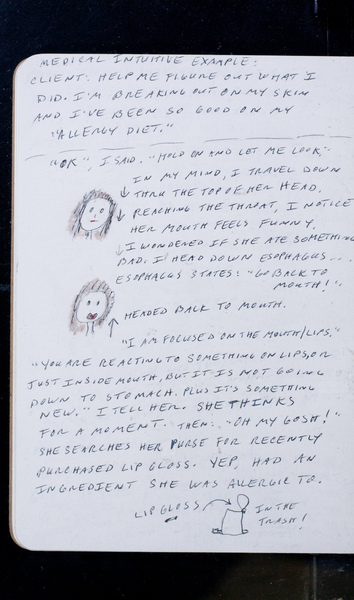 MEDICAL INTUITIVE EXAMPLE:
CLIENT: HELP ME FIGURE OUT WHAT I
DID. I'M BREAKING OUT ON MY SKIN
AND I'VE BEEN SO GOOD ON MY
"ALLERGY DIET."
"OK", I SAID. "HOLD ON AND LET ME LOOK,"
IN MY MIND, I TRAVEL DOWN
THRU THE TOP OF HER HEAD.
REACHING THE THROAT, I NOTICE
HER MOUTH FEELS FUNNY.
I WONDERED IF SHE ATE SOMETHING
BAD. I HEAD DOWN ESOPHAGUS...
ESOPHAGUS STATES: "GO BACK TO
MOUTH!".
HEADED BACK TO MOUTH.
"I AM FOCUSED ON THE MOUTH/LIPS."
"YOU ARE REACTING TO SOMETHING ON LIPS, OR
JUST INSIDE MOUTH, BUT IT IS NOT GOING
DOWN TO STOMACH. PLUS IT'S SOMETHING
NEW." I TELL HER. SHE THINKS
FOR A MOMENT. THEN: "OH MY GOSH!".
SHE SEARCHES HER PURSE FOR RECENTLY
PURCHASED LIP GLOSS. YEP, HAD AN
INGREDIENT SHE WAS ALLERGIC TO.
LIP GLOSS
IN THE
TRASH!